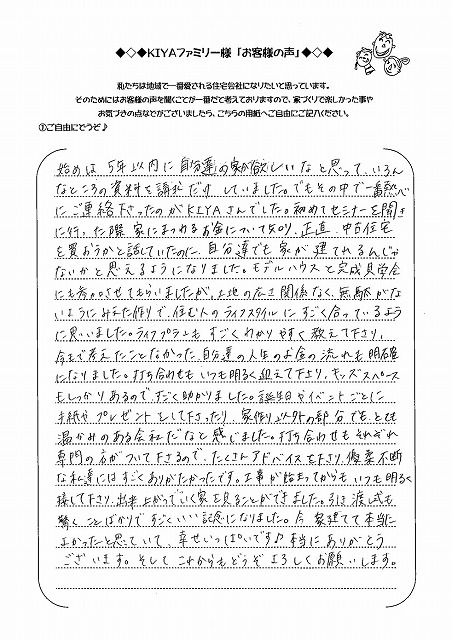 ◆◇◆KIYAファミリー様「お客様の声」◆◇◆
私たちは地域で一番愛される住宅会社になりたいと思っています。
そのためにはお客様の声を聞くことが一番だと考えておりますので、家づくりで楽しかった事や
お気づきの点などがございましたら、こちらの用紙へご自由にご記入ください。
①ご自由にどうぞ♪
始めは、5年以内に自分達の家が欲しいなと思って、いろん
なところの資料を請求だけしていました。でもその中で一番熱心
にご連絡下さったのがKIYAさんでした。初めてセミナーを聞き
に行った際、家にまつわるお金について知り、正直、中古住宅
を買おうかと話していたのに、自分達でも家が建てれるんじゃ
ないかと思えるようになりました。モデルハウスと完成見学会
にも参加させてもらいましたが、土地の広さ関係なく、無駄がな
いようにみえた作りで、住む人のライフスタイルにすごく合っているよう
に思いました。ライフプランも、すごくわかりやすく教えて下さり、
今まで考えたことなかった、自分達の人生のお金の流れも明確
になりました。打ち合わせもいつも明るく迎えて下さり、キッズスペース
もしっかりあるので、すごく助かりました。誕生日やイベントごとに
手紙やプレゼントをして下さったり、家作り以外の部分でも、とても
温かみのある会社だなと感じました。打ち合わせもそれぞれ
専門の方がついて下さるので、たくさんアドバイスを下さり、優柔不断
な私達にはすごくありがたかったです。工事が始まってからもいつも明るく
接して下さり、出来上がっていく家を見ることができました。引き渡し式も
驚くことばかりで、すごくいい記念になりました。今、家建てて本当に
よかったと思っていて、幸せいっぱいです♪本当にありがとう
ございます。そしてこれからもどうぞよろしくお願いします。